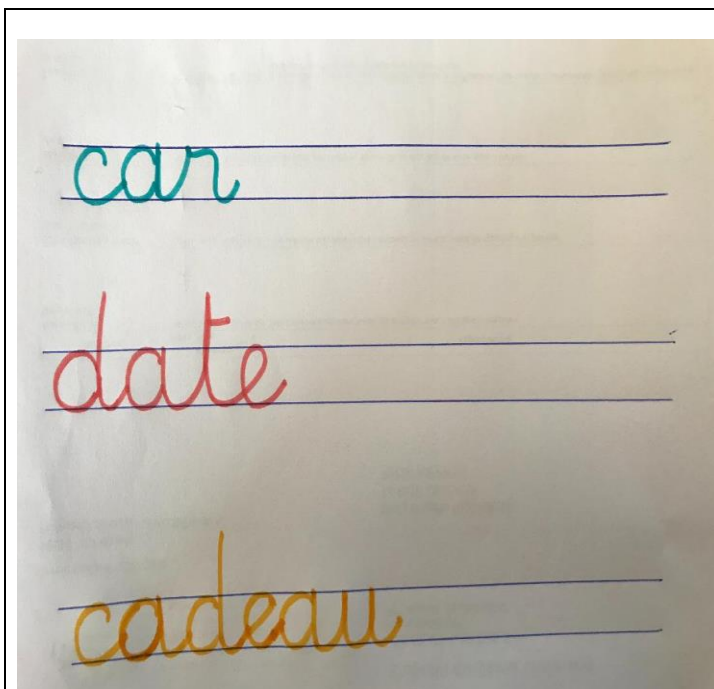 car
date
cadeau